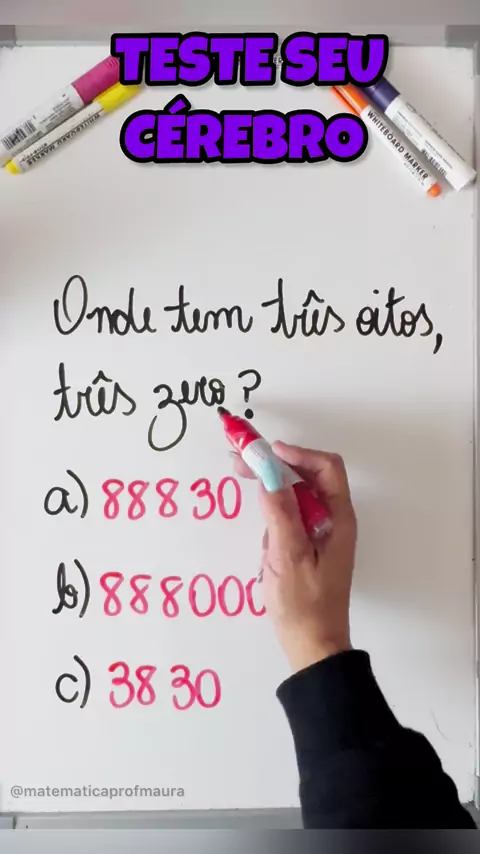 TESTE SEU
CÉREBRO
WHITEBOARD MARKER
WHITEBOARD MARKER
Onde tem três oitos,
três zero?
a) 88830
b) 888000
c) 3830
@matematicaprofmaura